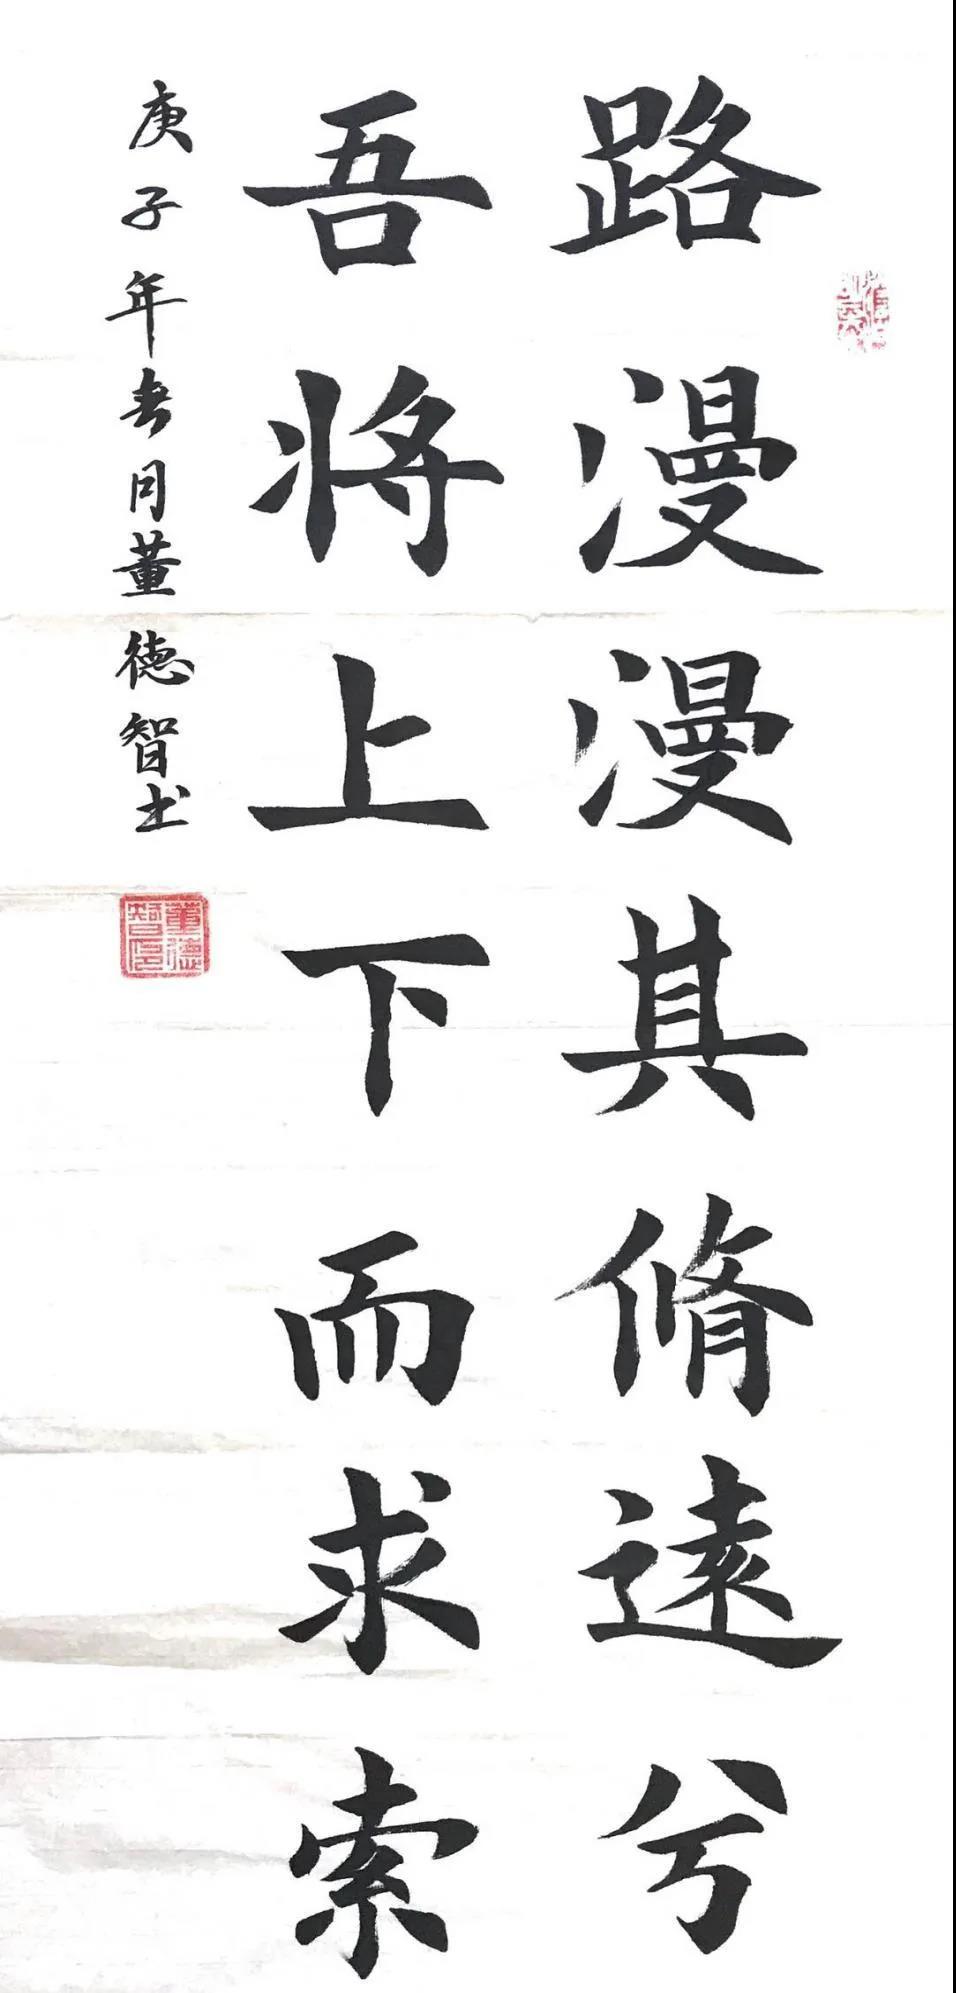 路漫漫其脩遠兮
吾将上下而求索
庚子年春月董德智书
董德智印